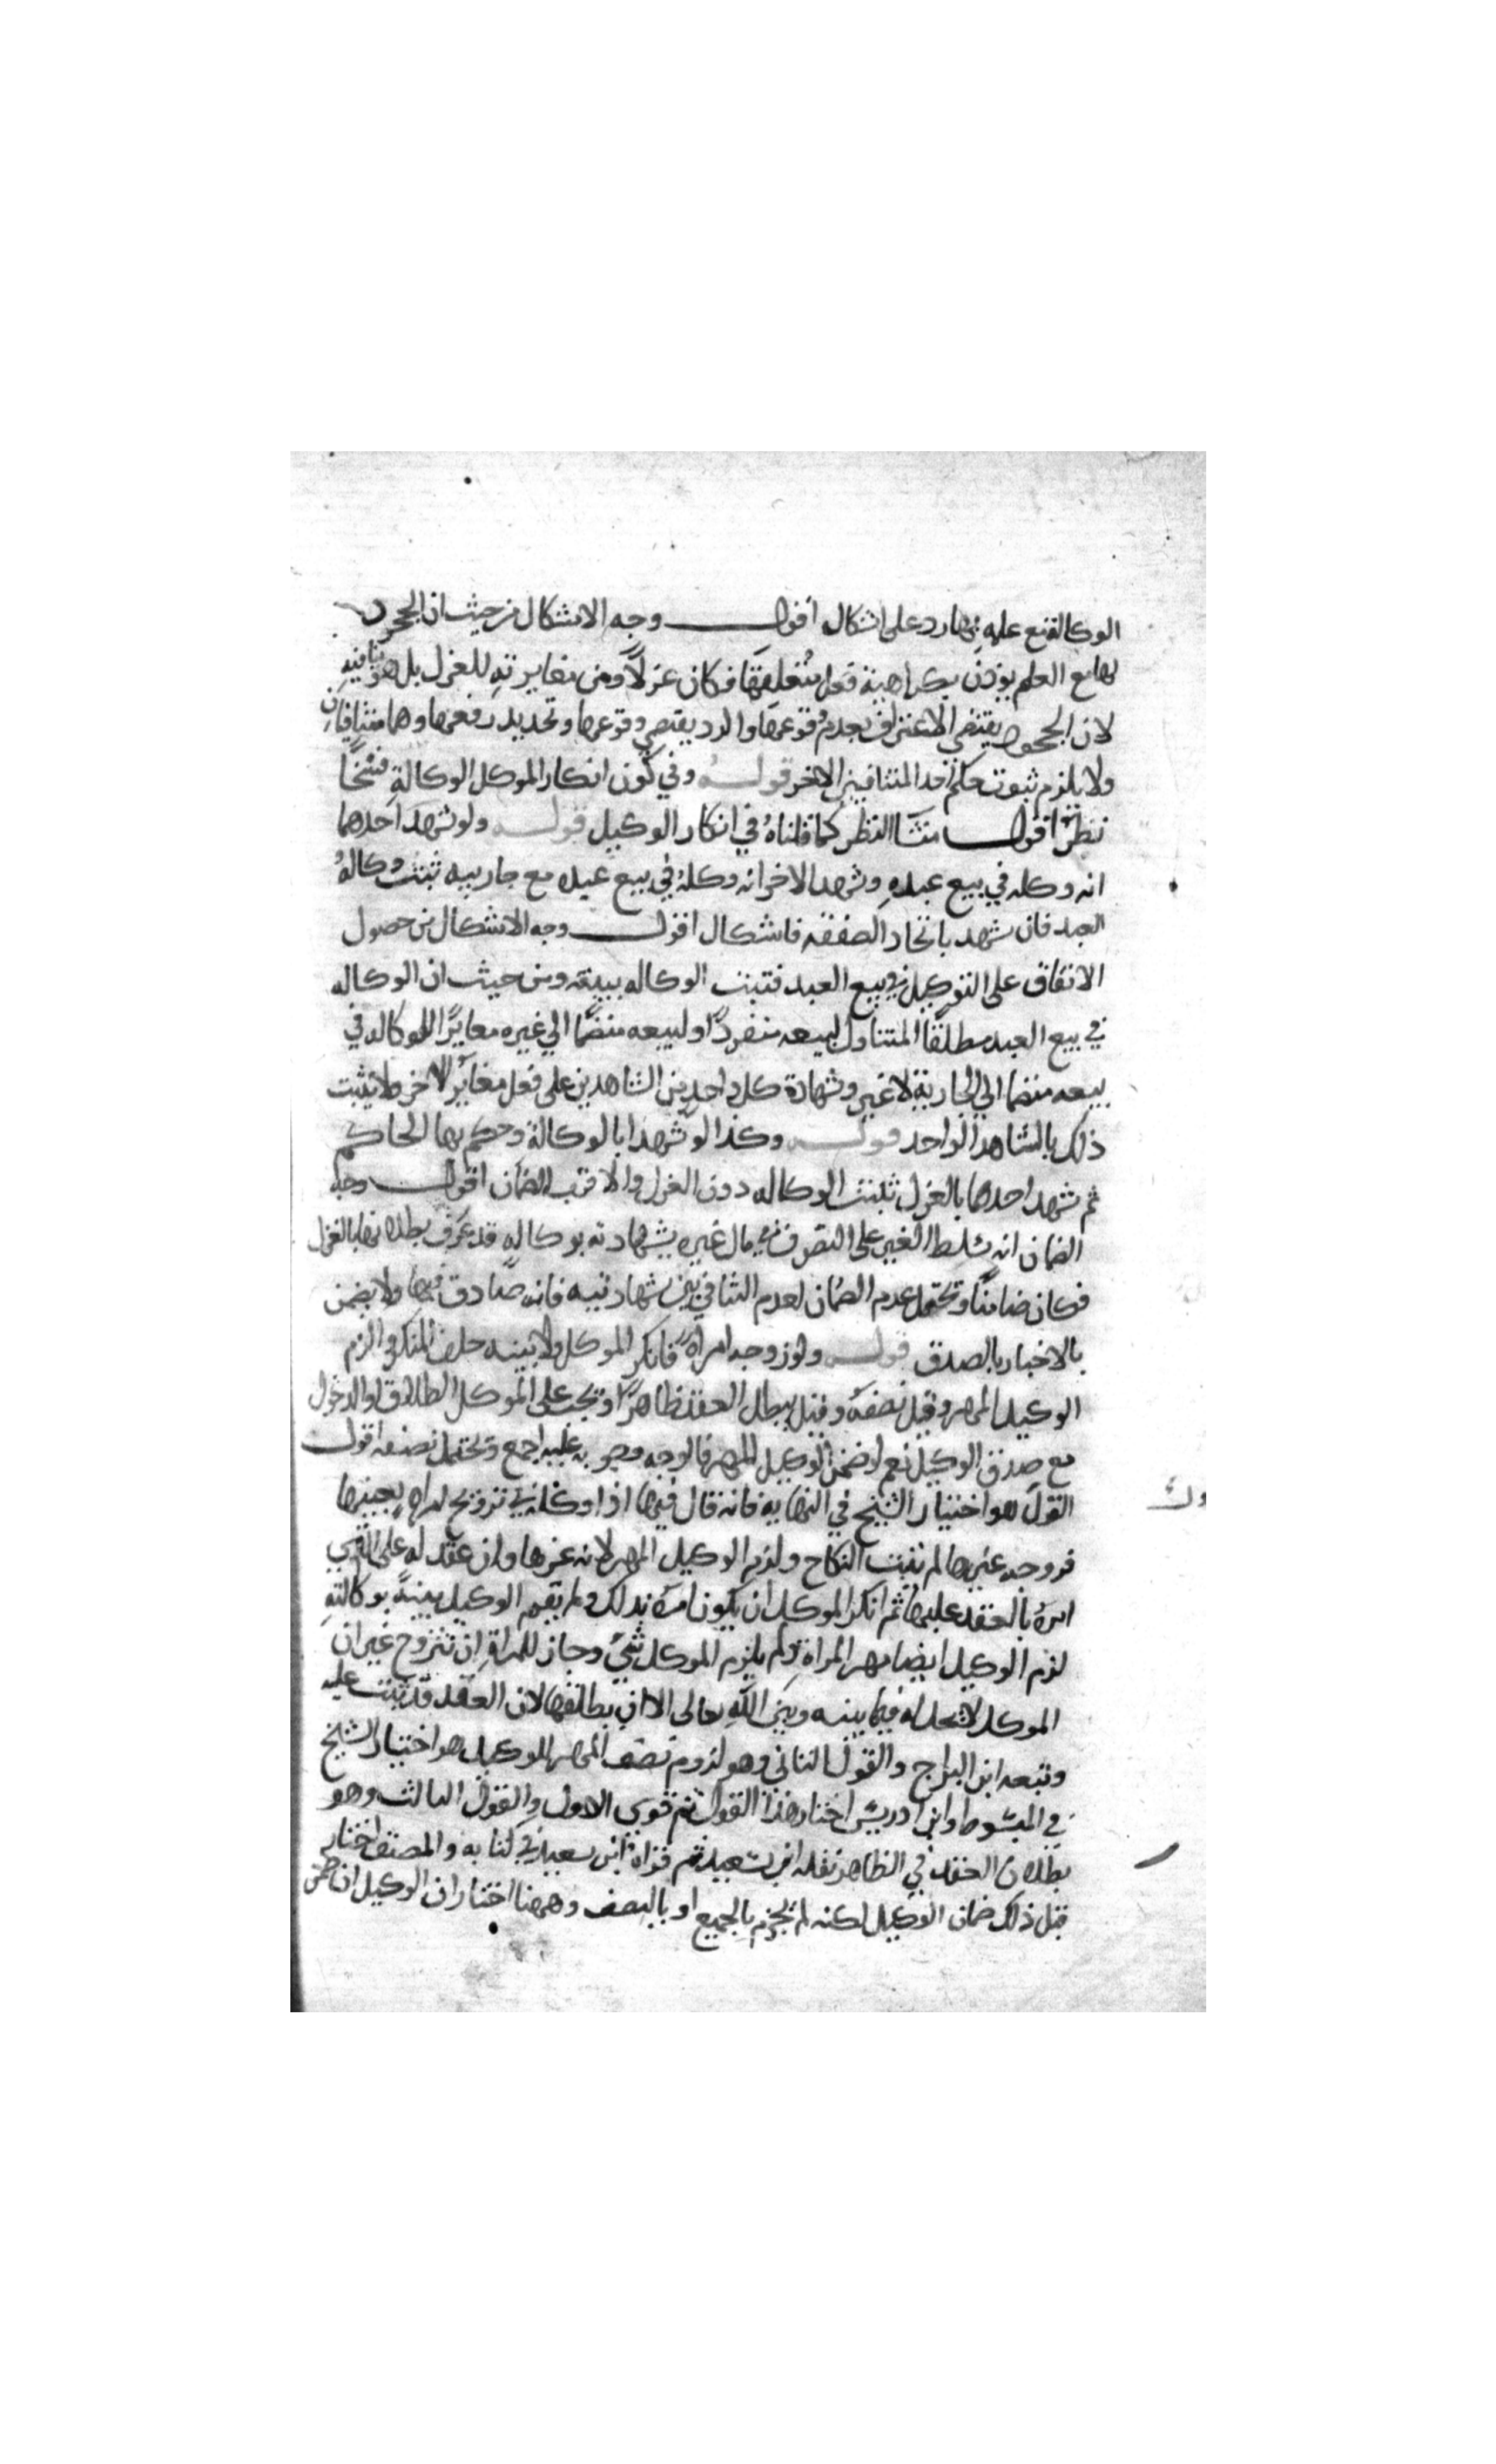 الوكالة مع علمه بها رد على اشكال اقول وجه الاشكال من حيث ان الجحود
لها مع العلم يوذن بكراهية فعل متعلقها فكان عزلاً ومن مغايرته للعزل بل هو ينافيه
لان الجحود يقتضي الاعتراف بعدم وقوعها والرد يقتضي وقوعها وتجديد رفعها وهما متنافيان
ولا يلزم ثبوت حكم احد المتنافيين الاخر قوله وفي كون انكار الموكل الوكالة فسخاً
نظر اقول منشا النظر كما قلناه في انكار الوكيل قوله ولو شهد احدهما
انه وكله في بيع عبده وشهد الاخر انه وكله في بيع عبده مع جاريته ثبتت وكاله
العبد فان شهد باتحاد الصفقه فاشكال اقول وجه الاشكال من حصول
الاتفاق على التوكيل في بيع العبد فتثبت الوكاله ببيعه ومن حيث ان الوكاله
في بيع العبد مطلقاً المتناول لبيعه منفرداً او لبيعه منضماً الي غيره مغايرًا للوكاله في
بيعه منضما الي الجارية لا غير وشهادة كل واحد من الشاهدين على فعل مغاير للاخر فلا يثبت
ذلك بالشاهد الواحد قوله وكذا لو شهدا بالوكالة وحكم بها الحاكم
ثم شهد احدهما بالعزل ثبتت الوكاله دون العزل والاقرب الضمان اقول وجه
الضمان انه سلط الغير على التصرف في مال غيره بشهادته بوكاله قد عرف بطلانها بالعزل
فكان ضامناً ويحتمل عدم الضمان لعدم التنافي بين شهادتيه فانه صادق فيها ولا يضمن
بالاخبار بالصدق قوله ولو زوجه امراة فانكر الموكل ولا بينه حلف المنكر والزم
الوكيل المهر وقيل نصفه وقيل يبطل العقد ظاهرًا ويجب على الموكل الطلاق او الدخول
مع صدق الوكيل نعم لو ضمن الوكيل المهر فالوجه وجوبه عليه اجمع ويحتمل نصفه اقول
القول هو اختيار الشيخ في النهايه فانه قال فيها اذا وكله في تزويج امراه بعينها
فزوجه غيرها لم يثبت النكاح ولزم الوكيل المهر لانه غرها وان عقد له على التي
امره بالعقد عليها ثم انكر الموكل ان يكون امره بذلك ولم يقم الوكيل بينةً بوكالته
لزم الوكيل ايضا مهر المراة ولم يلزم الموكل شيء وجاز للمراة ان تتزوج غير ان
الموكل لا يحل له فيما بينه وبين الله تعالى الا ان يطلقها لان العقد قد ثبتت عليه
وتبعه ابن البراج والقول الثاني وهو لزوم نصف المهر للوكيل هو اختيار الشيخ
في المبسوط وابن ادريس اختار هذا القول ثم قوى الاول والقول الثالث وهو
بطلان العقد في الظاهر نقله ابن سعيد ثم قواه ابن سعيد في كتابه والمصنف اختار
قبل ذلك ضمان الوكيل لكنه لم يجزم بالجميع او بالنصف وههنا اختار ان الوكيل ان ضمن